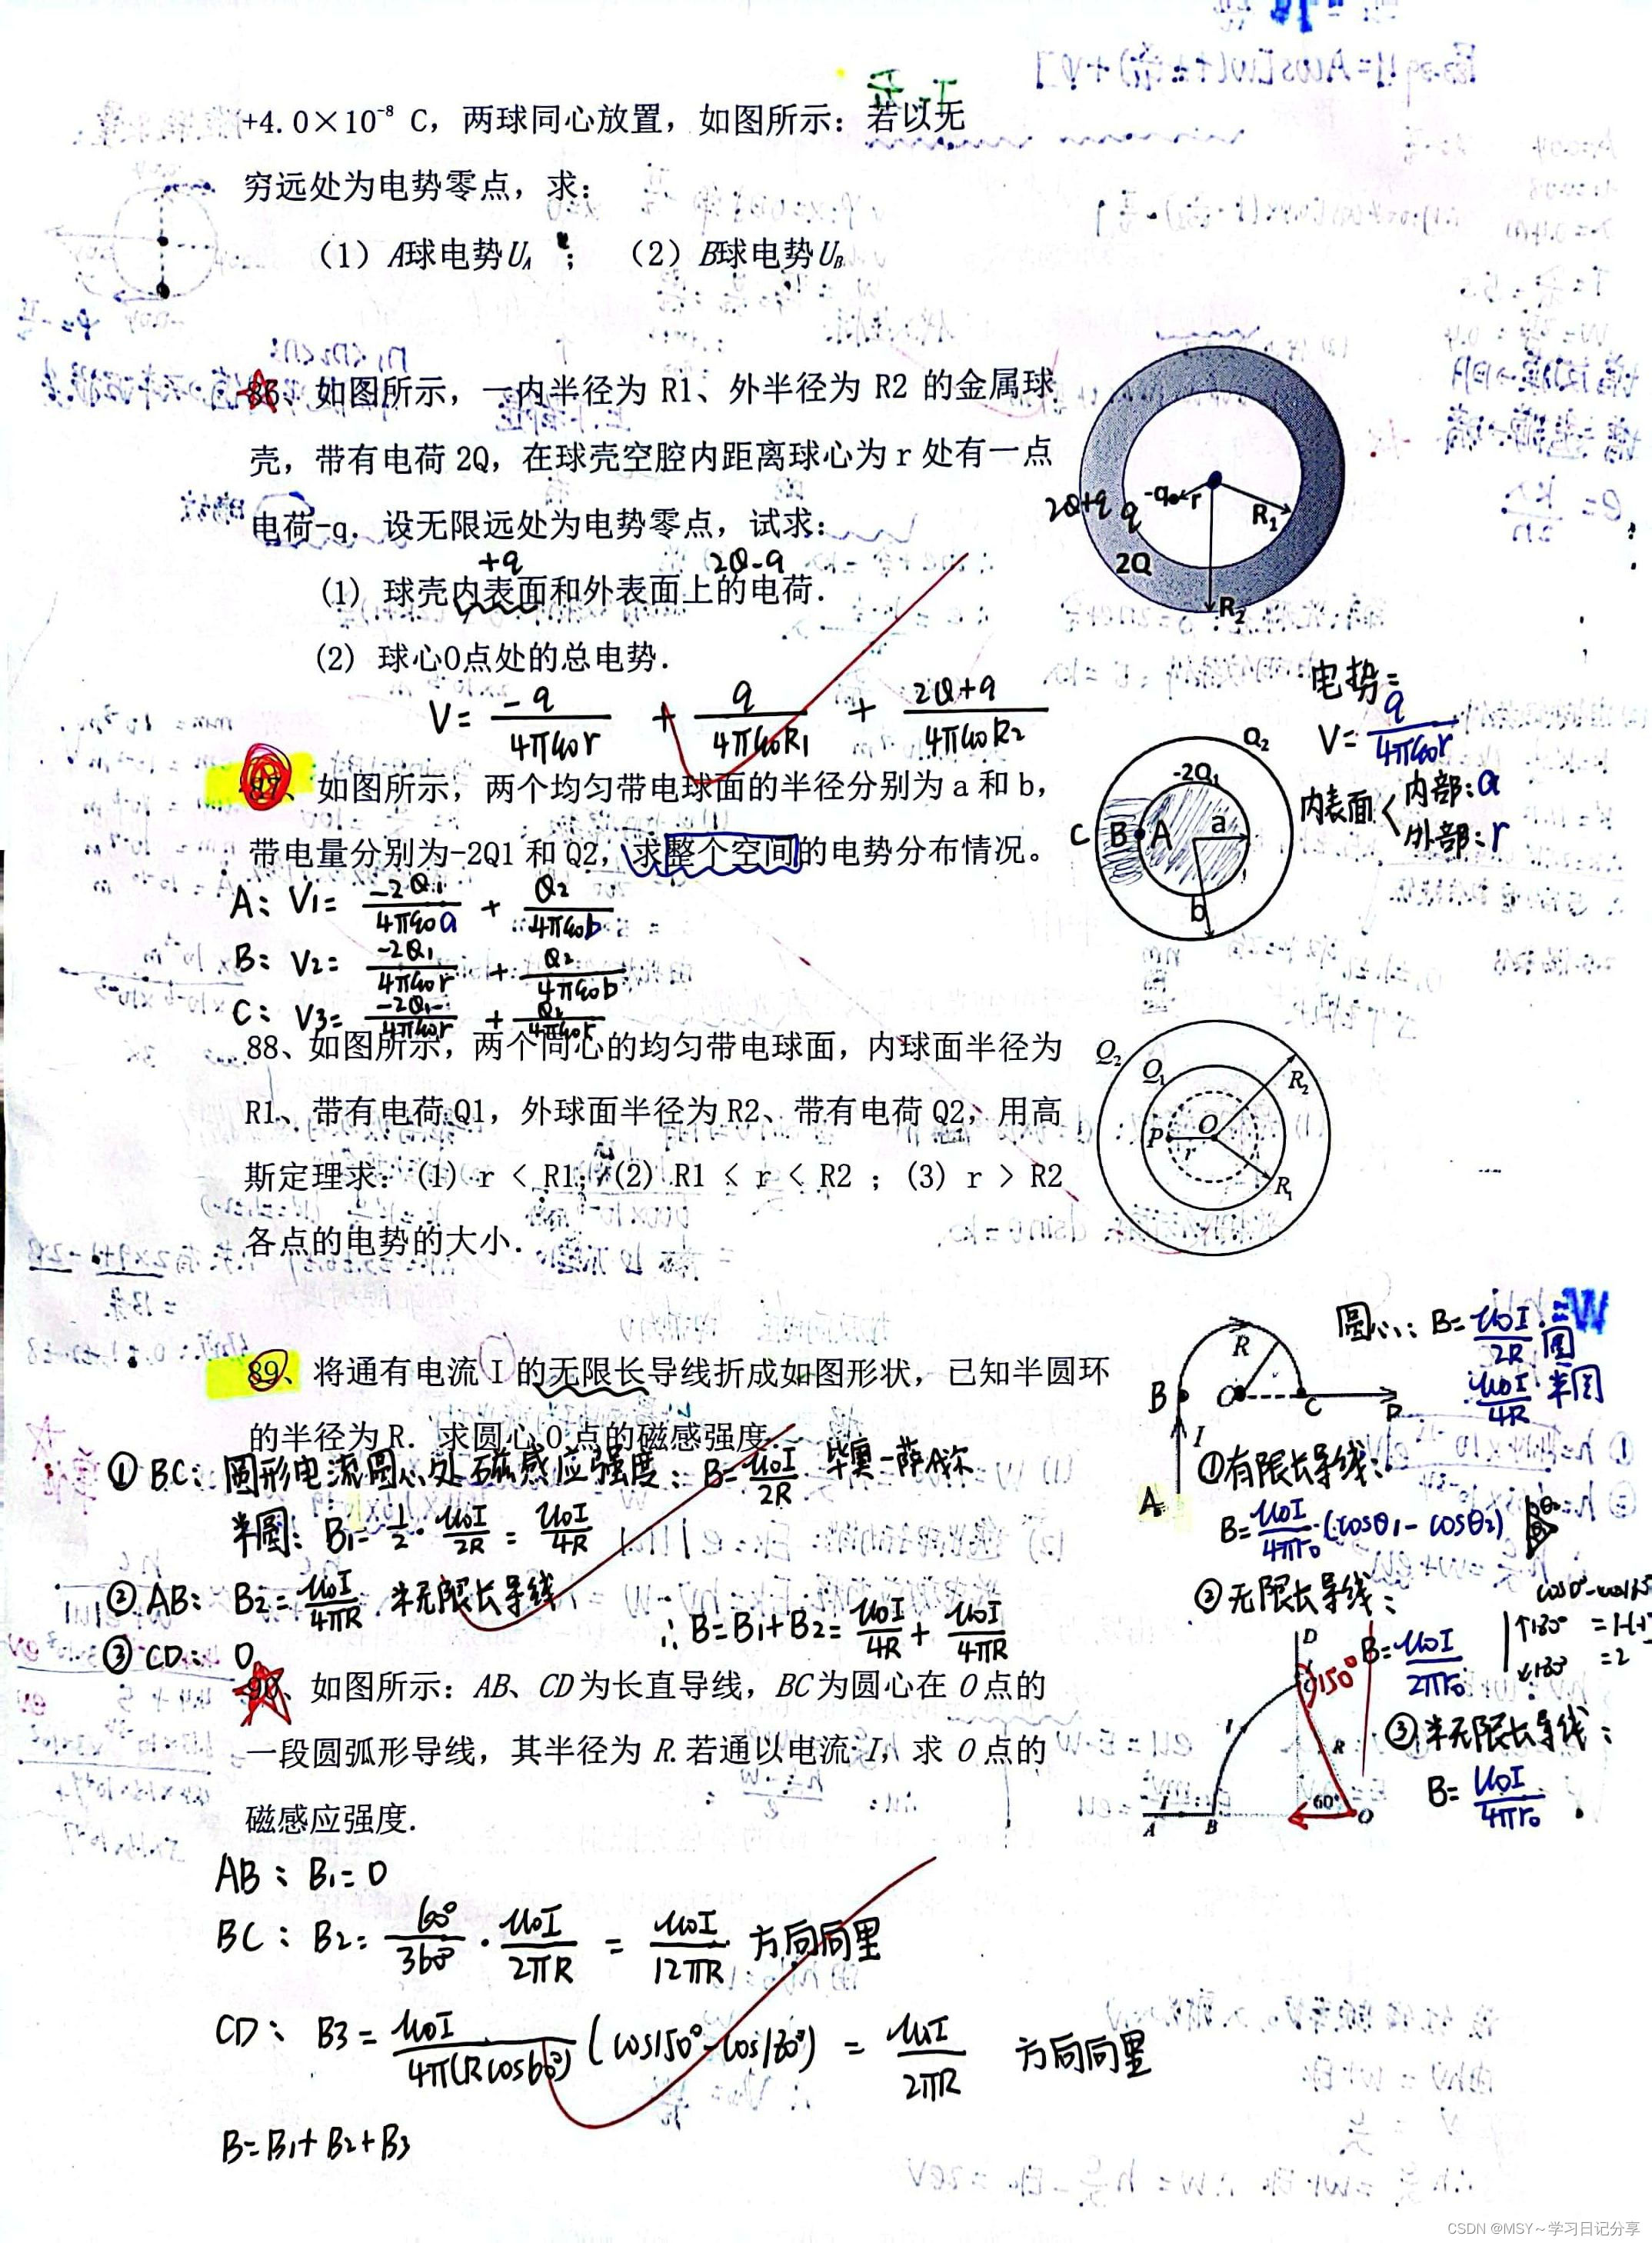 +4.0×10⁻⁸ C，两球同心放置，如图所示：若以无
穷远处为电势零点，求：
（1）A球电势U_A ； （2）B球电势U_B
86、如图所示，一内半径为 R1、外半径为 R2 的金属球
壳，带有电荷 2Q，在球壳空腔内距离球心为 r 处有一点
电荷-q．设无限远处为电势零点，试求：
+q 2Q-q
(1) 球壳内表面和外表面上的电荷．
(2) 球心O点处的总电势．
V= -q/4πε0r + q/4πε0R1 + 2Q+q/4πε0R2
2Q+q q -q r R₁
2Q
R₂
电势=
V= q/4πε0r
内表面 < 内部：a
外部：r
87、如图所示，两个均匀带电球面的半径分别为 a 和 b，
带电量分别为-2Q1 和 Q2，求整个空间的电势分布情况。
Q₂
-2Q₁
C B A a
b
A： V1= -2Q1/4πε0a + Q2/4πε0b
B： V2= -2Q1/4πε0r + Q2/4πε0b
C： V3= -2Q1/4πε0r + Q2/4πε0r
88、如图所示，两个同心的均匀带电球面，内球面半径为
R1、带有电荷 Q1，外球面半径为 R2、带有电荷 Q2，用高
斯定理求：(1) r < R1；(2) R1 < r < R2 ；(3) r > R2
各点的电势的大小．
Q₂ Q₁ R₂
P O r R₁
89、将通有电流 I 的无限长导线折成如图形状，已知半圆环
的半径为 R．求圆心 O 点的磁感强度．
R
B O C D
I
A
圆心：B= μ0I/2R 圆
μ0I/4R 半圆
① BC：圆形电流圆心处磁感应强度：B= μ0I/2R 毕奥-萨A尔
半圆：B1= 1/2 · μ0I/2R = μ0I/4R
② AB： B2= μ0I/4πR 半无限长导线
③ CD： 0
∴ B=B1+B2= μ0I/4R + μ0I/4πR
①有限长导线：
B= μ0I/4πr0 ·(cosθ1 - cosθ2)
②无限长导线：
B= μ0I/2πr0
↑180° =2
③半无限长导线：
B= μ0I/4πr0
90、如图所示：AB、CD 为长直导线，BC 为圆心在 O 点的
一段圆弧形导线，其半径为 R．若通以电流 I，求 O 点的
磁感应强度．
D
C 150°
I R
I 60°
A B O
AB： B1=0
BC： B2= 60°/360° · μ0I/2πR = μ0I/12πR 方向向里
CD： B3= μ0I/4π(Rcos60°) (cos150°-cos180°) = μ0I/2πR 方向向里
B=B1+B2+B3
CSDN @MSY～学习日记分享